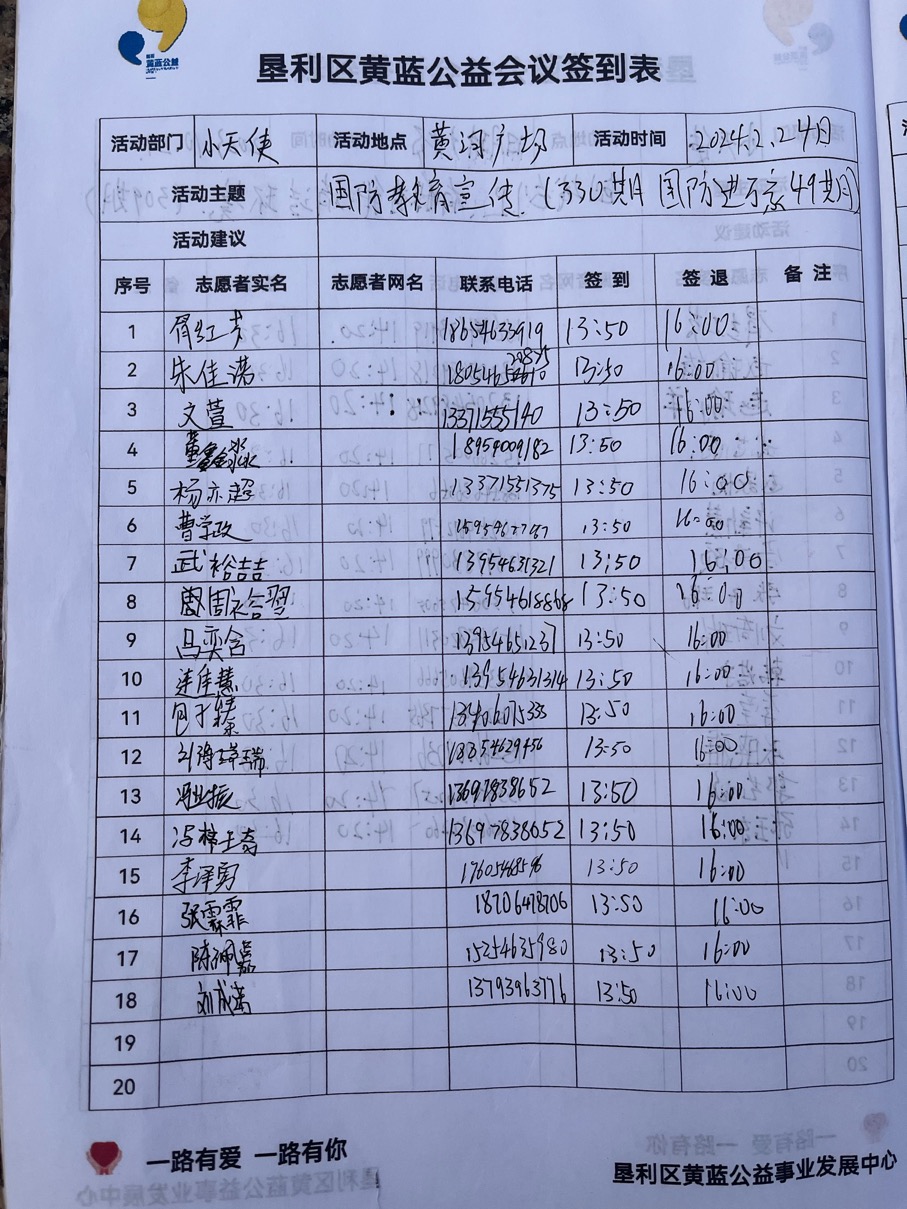 黄蓝公益
垦利区黄蓝公益会议签到表
活动部门 小天使 活动地点 黄河广场 活动时间 2024.2.24日
活动主题 国防教育宣传(330期 国防进万家49期)
活动建议
序号 志愿者实名 志愿者网名 联系电话 签到 签退 备注
1 胥红芳 18654633919 13:50 16:00
2 朱佳诺 13:50 16:00
3 文萱 13371555140 13:50 16:00
4 董鑫淼 18954009182 13:50 16:00
5 杨亦超 13371551375 13:50 16:00
6 曹学政 13:50 16:00
7 武裕喆 13954631321 13:50 16:00
8 15954618868 13:50 16:00
9 冯奕含 13954651237 13:50 16:00
10 佳慧 13954631314 13:50 16:00
11 包子臻 13:50 16:00
12 13:50 16:00
13 13697838652 13:50 16:00
14 冯梓王奇 13697838652 13:50 16:00
15 李泽男 13:50 16:00
16 张霖菲 18706478706 13:50 16:00
17 陈佩 15254635980 13:50 16:00
18 刘成 13793963776 13:50 16:00
19
20
一路有爱 一路有你
垦利区黄蓝公益事业发展中心